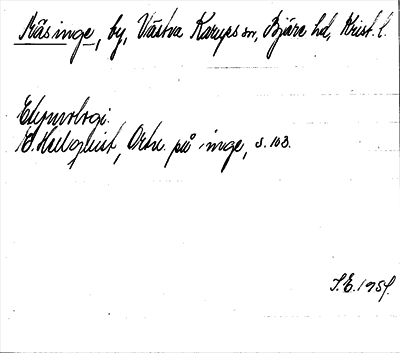 Mäsinge, by, Västra Karups sn, Bjäre hd, Krist. l.
Etymologi.
E. Hellquist, Ortn. på -inge, s. 103.
S.E. 1954.